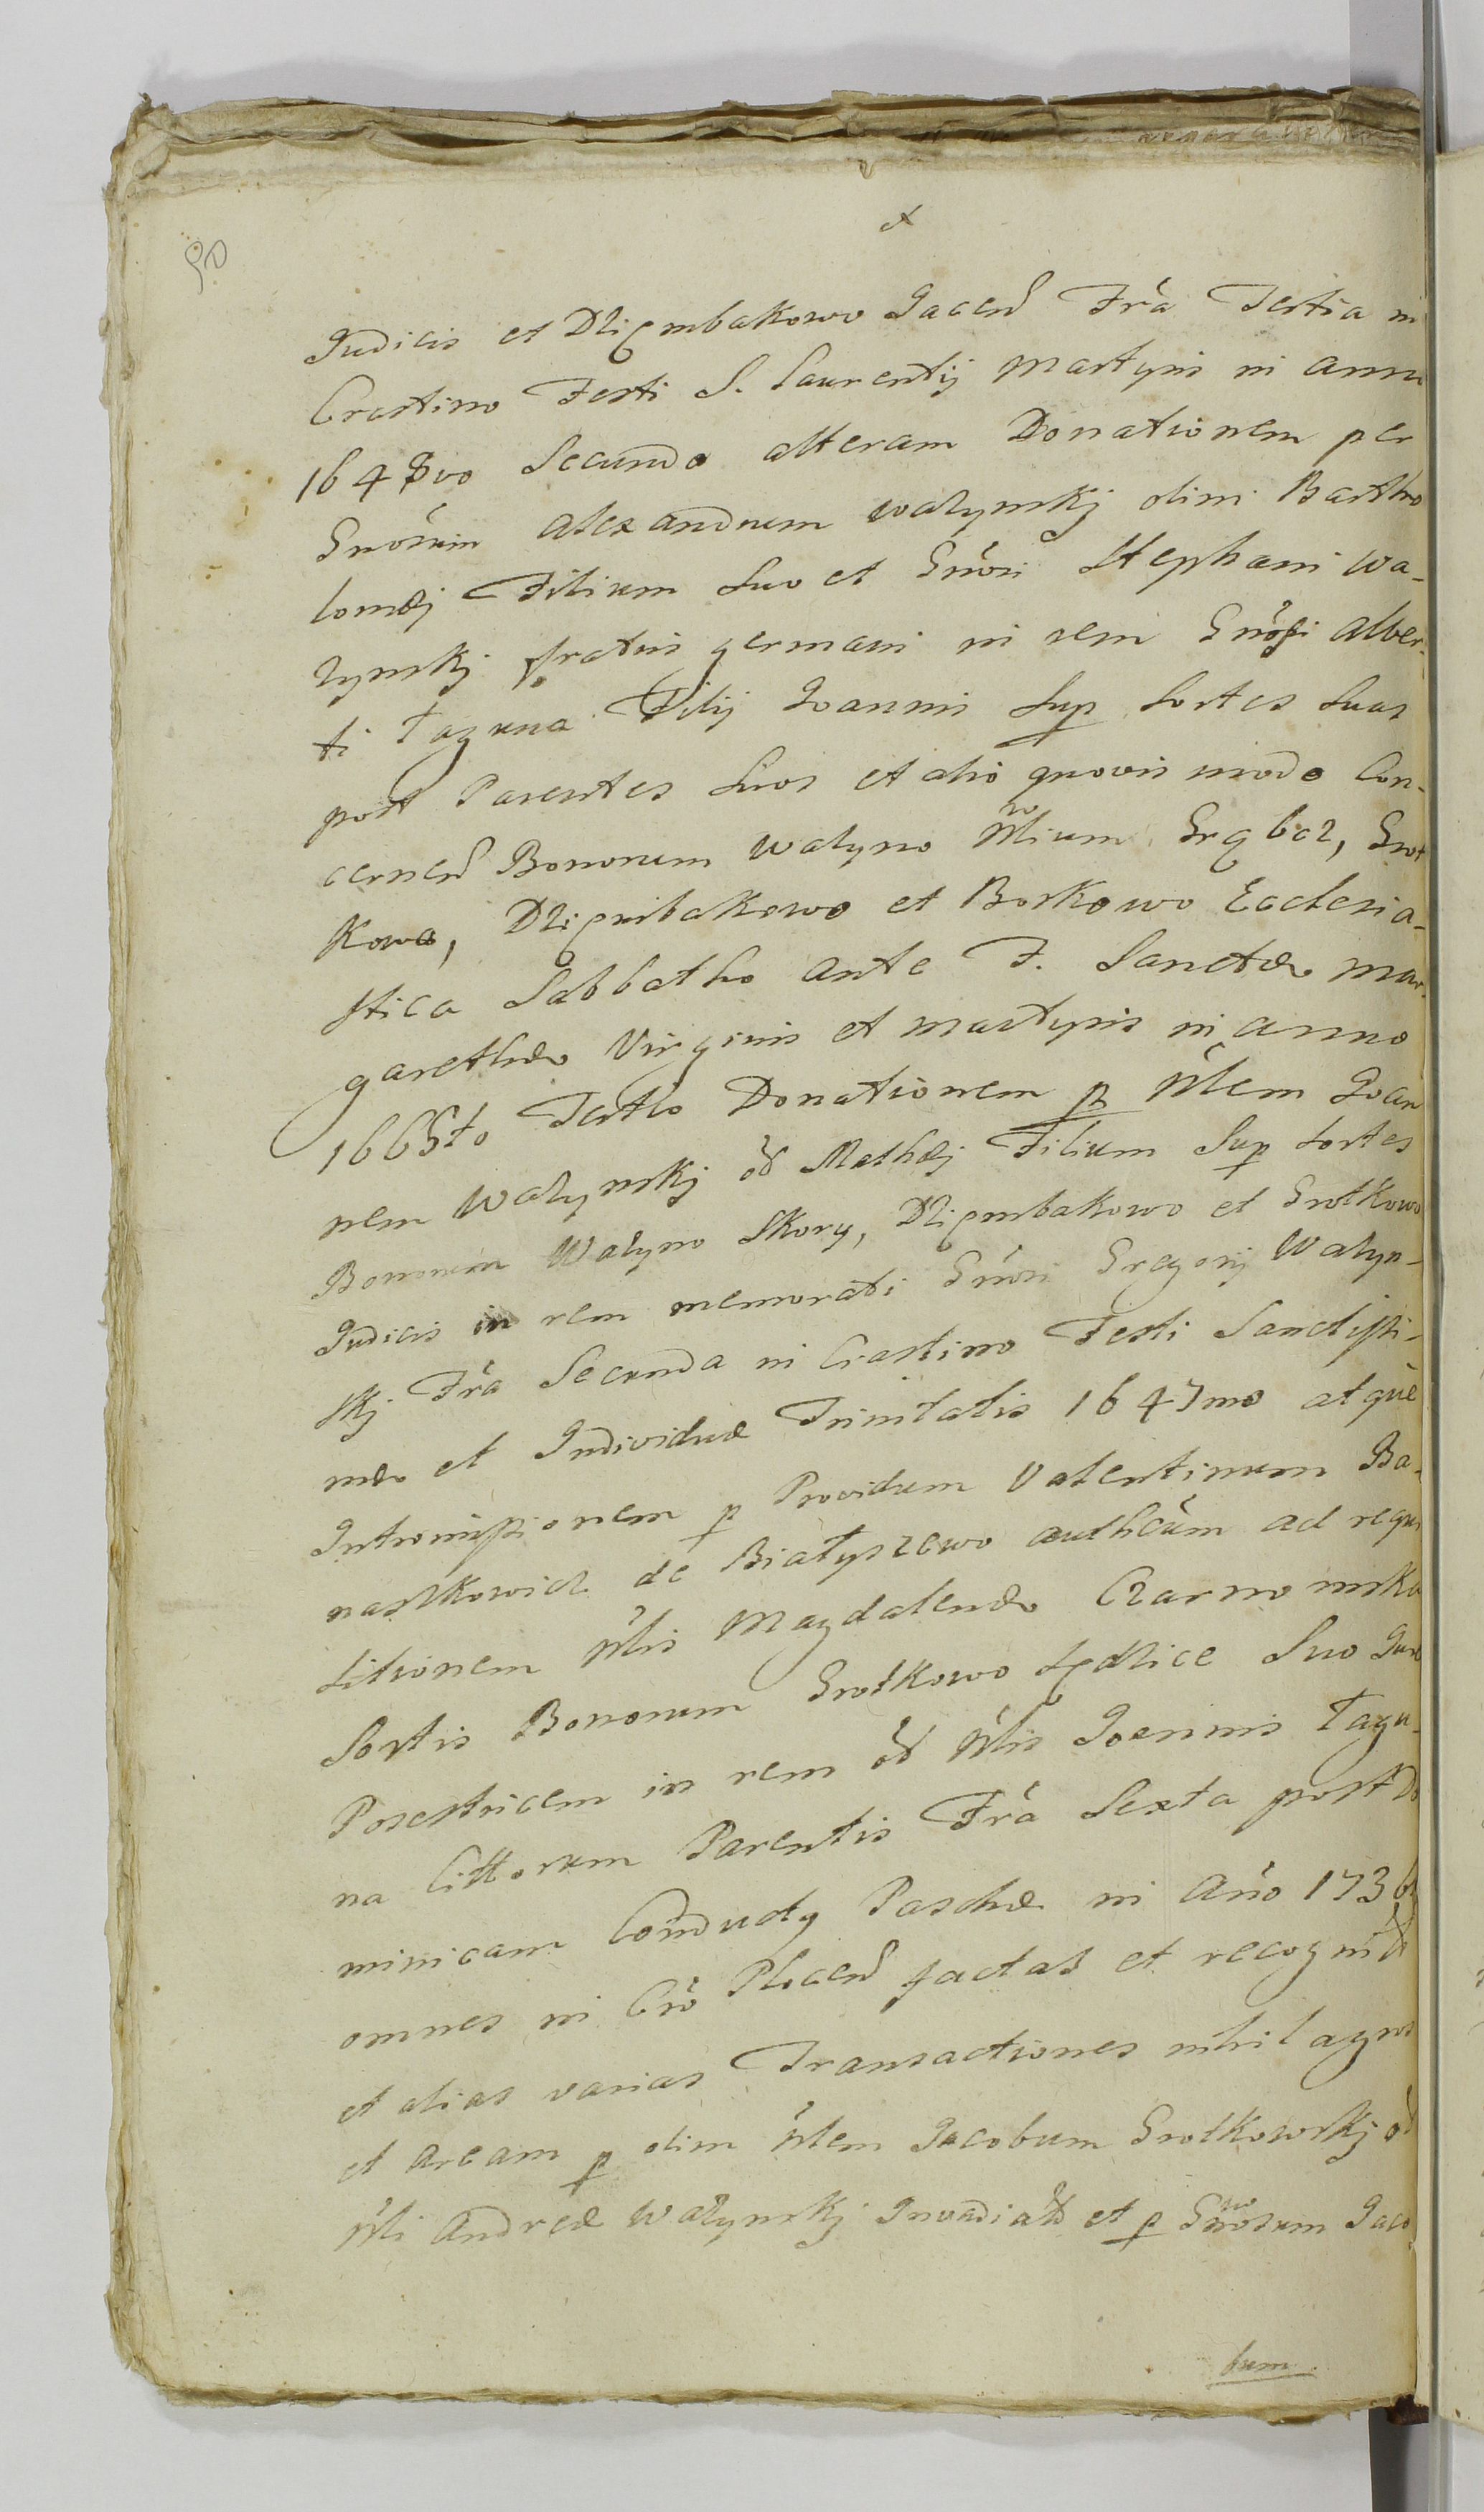 90
Judicis et Dziembakowo Jacen͂ Fra͂ Tertia in
Crastino Festi S. Laurentij Martyris in anno
1648vo Secundo alteram Donationem per
Gnosum Alexandrum Walynskj olim Bartho
lomæj Filium Suo et Gnosi Stephani Wa-
lynskj fratris germani in rem Gnosi Alber-
ti Taguna Filij Joannis Sup Sortes Suas
post Parentes Suos et alio quovis modo Con-
cernen͂ Bonorum Walyno Nlium Grąbcz, Grot
kowo, Dziembakowo et Borkowo Ecclesia-
stica Sabbatho ante F. Sanctæ Mar-
garethæ Virginis et Martyris in anno
1665to Tertio Donationem p Nlem Joan
nem Walynskj od Mathæj Filium Sup Sortes
Bonorum Walyno Skory, Dziembakowo et Grotkowo
Judicis in rem memorati Gnosi Gregorij Walyn-
skj Fra͂ Secunda in Crastino Festi Sanctissi-
mæ et Individuæ Trinitatis 1647mo atque
Intromissionem p Providum Valentinum Ba-
naszkowicz de Białyszewo authcum ad requi
sitionem Nlis Magdalenæ Czarnomska
Sortis Bonorum Grotkowo Sędzice Suo Jure
Posestricem in rem od Nlis Joannis Tagu-
na Cittorum Parentis Fra͂ Sexta post Do
minicam Conductus Paschæ in Ano 1736
omnes in Cro Plocen͂ factas et recognit
et alias varias Transactiones nihil agros
et aream p olim Nlem Jacobum Grotkowskj od
Nli Andreæ Walynskj Invadiat et p Gnosum Jaco
bum